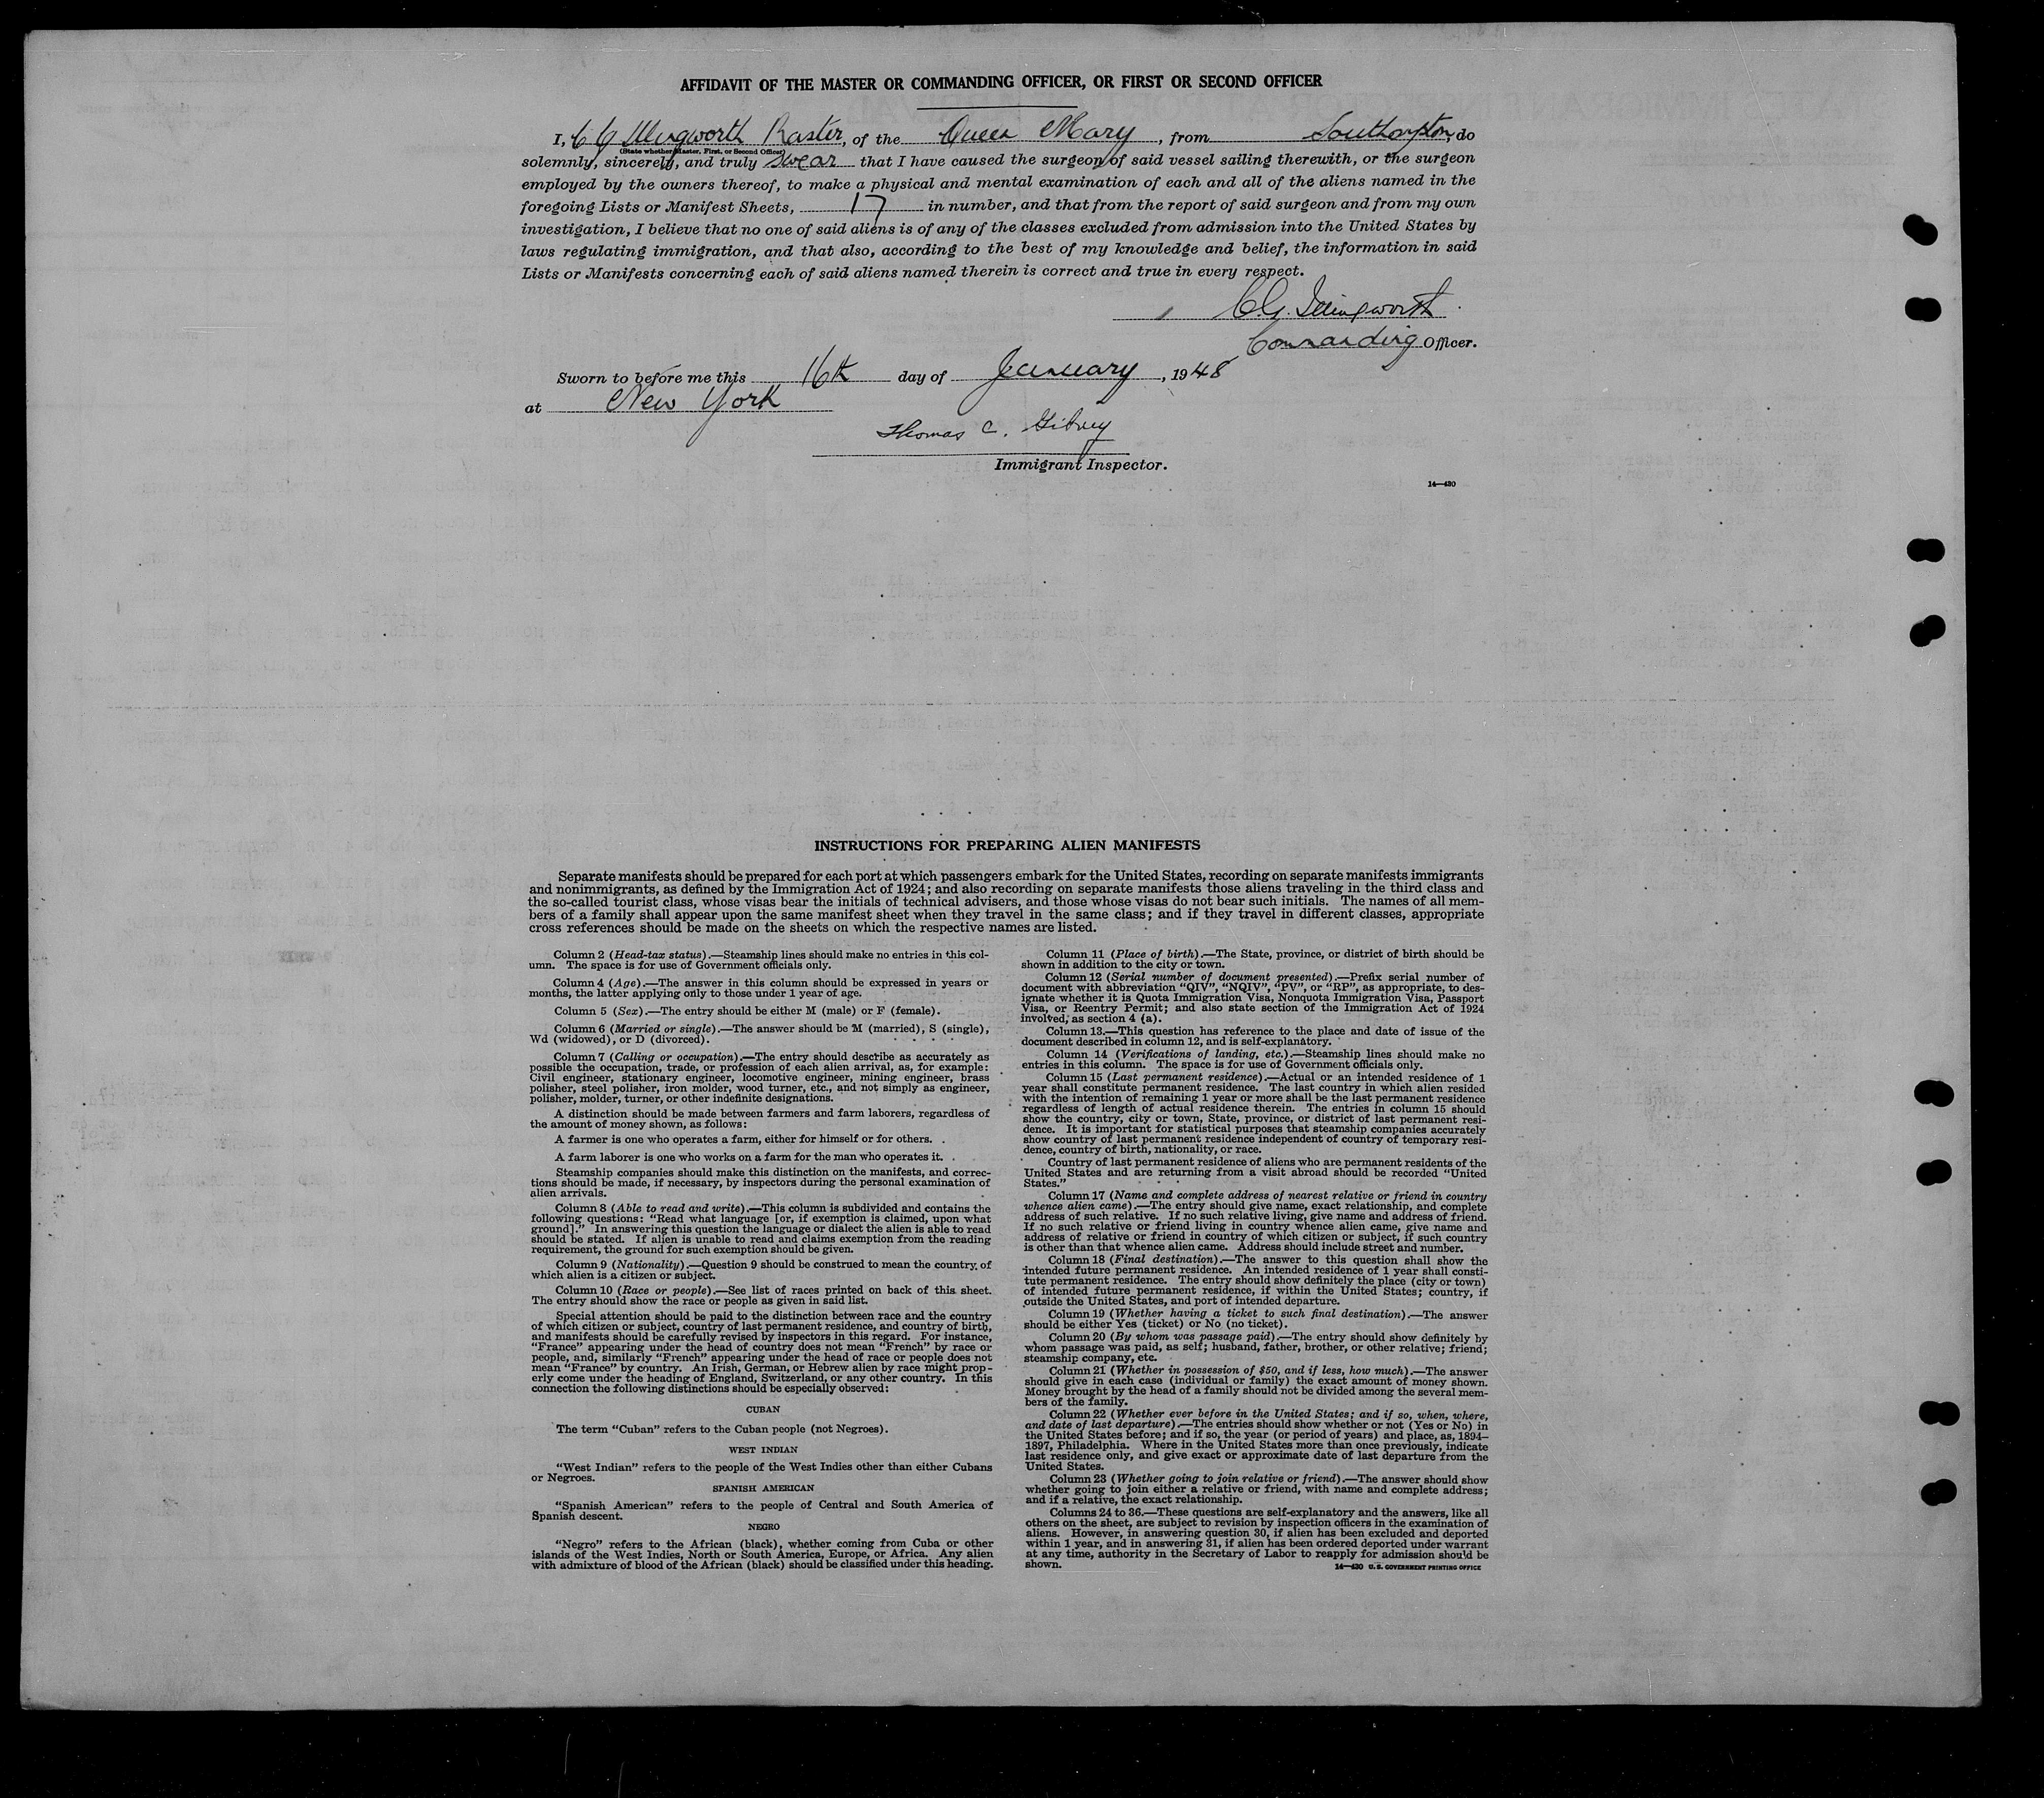 AFFIDAVIT OF THE MASTER OR COMMANDING OFFICER, OR FIRST OR SECOND OFFICER
I, C G Illingworth Master, of the Queen Mary, from Southampton, do
(State whether Master, First, or Second Officer)
solemnly, sincerely, and truly swear that I have caused the surgeon of said vessel sailing therewith, or the surgeon
employed by the owners thereof, to make a physical and mental examination of each and all of the aliens named in the
foregoing Lists or Manifest Sheets, 17 in number, and that from the report of said surgeon and from my own
investigation, I believe that no one of said aliens is of any of the classes excluded from admission into the United States by
laws regulating immigration, and that also, according to the best of my knowledge and belief, the information in said
Lists or Manifests concerning each of said aliens named therein is correct and true in every respect.
C.G. Illingworth
Commanding Officer.
Sworn to before me this 16th day of January, 1948
at New York
Thomas C.
Immigrant Inspector.
14—430
INSTRUCTIONS FOR PREPARING ALIEN MANIFESTS
Separate manifests should be prepared for each port at which passengers embark for the United States, recording on separate manifests immigrants
and nonimmigrants, as defined by the Immigration Act of 1924; and also recording on separate manifests those aliens traveling in the third class and
the so-called tourist class, whose visas bear the initials of technical advisers, and those whose visas do not bear such initials. The names of all mem-
bers of a family shall appear upon the same manifest sheet when they travel in the same class; and if they travel in different classes, appropriate
cross references should be made on the sheets on which the respective names are listed.
Column 2 (Head-tax status).—Steamship lines should make no entries in this col-
umn. The space is for use of Government officials only.
Column 4 (Age).—The answer in this column should be expressed in years or
months, the latter applying only to those under 1 year of age.
Column 5 (Sex).—The entry should be either M (male) or F (female).
Column 6 (Married or single).—The answer should be M (married), S (single),
Wd (widowed), or D (divorced).
Column 7 (Calling or occupation).—The entry should describe as accurately as
possible the occupation, trade, or profession of each alien arrival, as, for example:
Civil engineer, stationary engineer, locomotive engineer, mining engineer, brass
polisher, steel polisher, iron molder, wood turner, etc., and not simply as engineer,
polisher, molder, turner, or other indefinite designations.
A distinction should be made between farmers and farm laborers, regardless of
the amount of money shown, as follows:
A farmer is one who operates a farm, either for himself or for others.
A farm laborer is one who works on a farm for the man who operates it.
Steamship companies should make this distinction on the manifests, and correc-
tions should be made, if necessary, by inspectors during the personal examination of
alien arrivals.
Column 8 (Able to read and write).—This column is subdivided and contains the
following questions: "Read what language [or, if exemption is claimed, upon what
ground]." In answering this question the language or dialect the alien is able to read
should be stated. If alien is unable to read and claims exemption from the reading
requirement, the ground for such exemption should be given.
Column 9 (Nationality).—Question 9 should be construed to mean the country of
which alien is a citizen or subject.
Column 10 (Race or people).—See list of races printed on back of this sheet.
The entry should show the race or people as given in said list.
Special attention should be paid to the distinction between race and the country
of which citizen or subject, country of last permanent residence, and country of birth,
and manifests should be carefully revised by inspectors in this regard. For instance,
"France" appearing under the head of country does not mean "French" by race or
people, and, similarly "French" appearing under the head of race or people does not
mean "France" by country. An Irish, German, or Hebrew alien by race might prop-
erly come under the heading of England, Switzerland, or any other country. In this
connection the following distinctions should be especially observed:
CUBAN
The term "Cuban" refers to the Cuban people (not Negroes).
WEST INDIAN
"West Indian" refers to the people of the West Indies other than either Cubans
or Negroes.
SPANISH AMERICAN
"Spanish American" refers to the people of Central and South America of
Spanish descent.
NEGRO
"Negro" refers to the African (black), whether coming from Cuba or other
islands of the West Indies, North or South America, Europe, or Africa. Any alien
with admixture of blood of the African (black) should be classified under this heading.
Column 11 (Place of birth).—The State, province, or district of birth should be
shown in addition to the city or town.
Column 12 (Serial number of document presented).—Prefix serial number of
document with abbreviation "QIV", "NQIV", "PV", or "RP", as appropriate, to des-
ignate whether it is Quota Immigration Visa, Nonquota Immigration Visa, Passport
Visa, or Reentry Permit; and also state section of the Immigration Act of 1924
involved, as section 4 (a).
Column 13.—This question has reference to the place and date of issue of the
document described in column 12, and is self-explanatory.
Column 14 (Verifications of landing, etc.).—Steamship lines should make no
entries in this column. The space is for use of Government officials only.
Column 15 (Last permanent residence).—Actual or an intended residence of 1
year shall constitute permanent residence. The last country in which alien resided
with the intention of remaining 1 year or more shall be the last permanent residence
regardless of length of actual residence therein. The entries in column 15 should
show the country, city or town, State, province, or district of last permanent resi-
dence. It is important for statistical purposes that steamship companies accurately
show country of last permanent residence independent of country of temporary resi-
dence, country of birth, nationality, or race.
Country of last permanent residence of aliens who are permanent residents of the
United States and are returning from a visit abroad should be recorded "United
States."
Column 17 (Name and complete address of nearest relative or friend in country
whence alien came).—The entry should give name, exact relationship, and complete
address of such relative. If no such relative living, give name and address of friend.
If no such relative or friend living in country whence alien came, give name and
address of relative or friend in country of which citizen or subject, if such country
is other than that whence alien came. Address should include street and number.
Column 18 (Final destination).—The answer to this question shall show the
intended future permanent residence. An intended residence of 1 year shall consti-
tute permanent residence. The entry should show definitely the place (city or town)
of intended future permanent residence, if within the United States; country, if
outside the United States, and port of intended departure.
Column 19 (Whether having a ticket to such final destination).—The answer
should be either Yes (ticket) or No (no ticket).
Column 20 (By whom was passage paid).—The entry should show definitely by
whom passage was paid, as self; husband, father, brother, or other relative; friend;
steamship company, etc.
Column 21 (Whether in possession of $50, and if less, how much).—The answer
should give in each case (individual or family) the exact amount of money shown.
Money brought by the head of a family should not be divided among the several mem-
bers of the family.
Column 22 (Whether ever before in the United States; and if so, when, where,
and date of last departure).—The entries should show whether or not (Yes or No) in
the United States before; and if so, the year (or period of years) and place, as, 1894–
1897, Philadelphia. Where in the United States more than once previously, indicate
last residence only, and give exact or approximate date of last departure from the
United States.
Column 23 (Whether going to join relative or friend).—The answer should show
whether going to join either a relative or friend, with name and complete address;
and if a relative, the exact relationship.
Columns 24 to 36.—These questions are self-explanatory and the answers, like all
others on the sheet, are subject to revision by inspection officers in the examination of
aliens. However, in answering question 30, if alien has been excluded and deported
within 1 year, and in answering 31, if alien has been ordered deported under warrant
at any time, authority in the Secretary of Labor to reapply for admission should be
shown.
14—430 U. S. GOVERNMENT PRINTING OFFICE